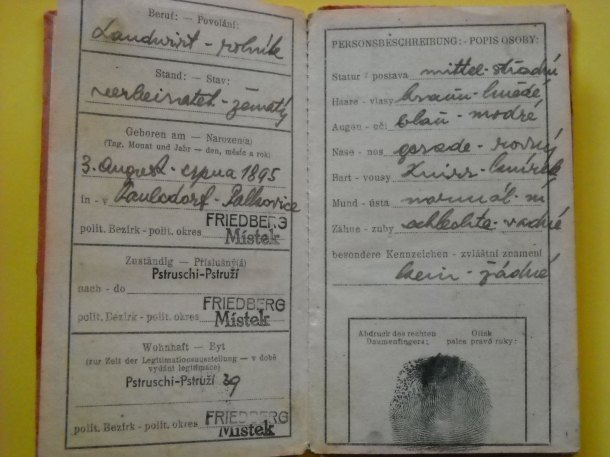 Beruf: — Povolání:
Landwirt - rolník
Stand: — Stav:
verheiratet - ženatý
Geboren am — Narozen(a)
(Tag, Monat und Jahr — den, měsíc a rok)
3. August - srpna 1895
in - v Paulsdorf - Palkovice
FRIEDBERG
polit. Bezirk - polit. okres Místek
Zuständig — Příslušný(á)
Pstruschi-Pstruží
nach - do
FRIEDBERG
polit. Bezirk - polit. okres Místek
Wohnhaft — Byt
(zur Zeit der Legitimationsausstellung — v době
vydání legitimace)
Pstruschi-Pstruží 39
FRIEDBERG
polit. Bezirk - polit. okres Místek
PERSONSBESCHREIBUNG: - POPIS OSOBY:
Statur / postava mittel - střední
Haare - vlasy braun - hnědé
Augen - oči blau - modré
Nase - nos gerade - rovný
Bart - vousy
Mund - ústa normál - ní
Zähne - zuby schlechte - vadné
besondere Kennzeichen - zvláštní znamení
kein - žádné
Abdruck des rechten
Daumenfingers:
Otisk
palce pravé ruky: